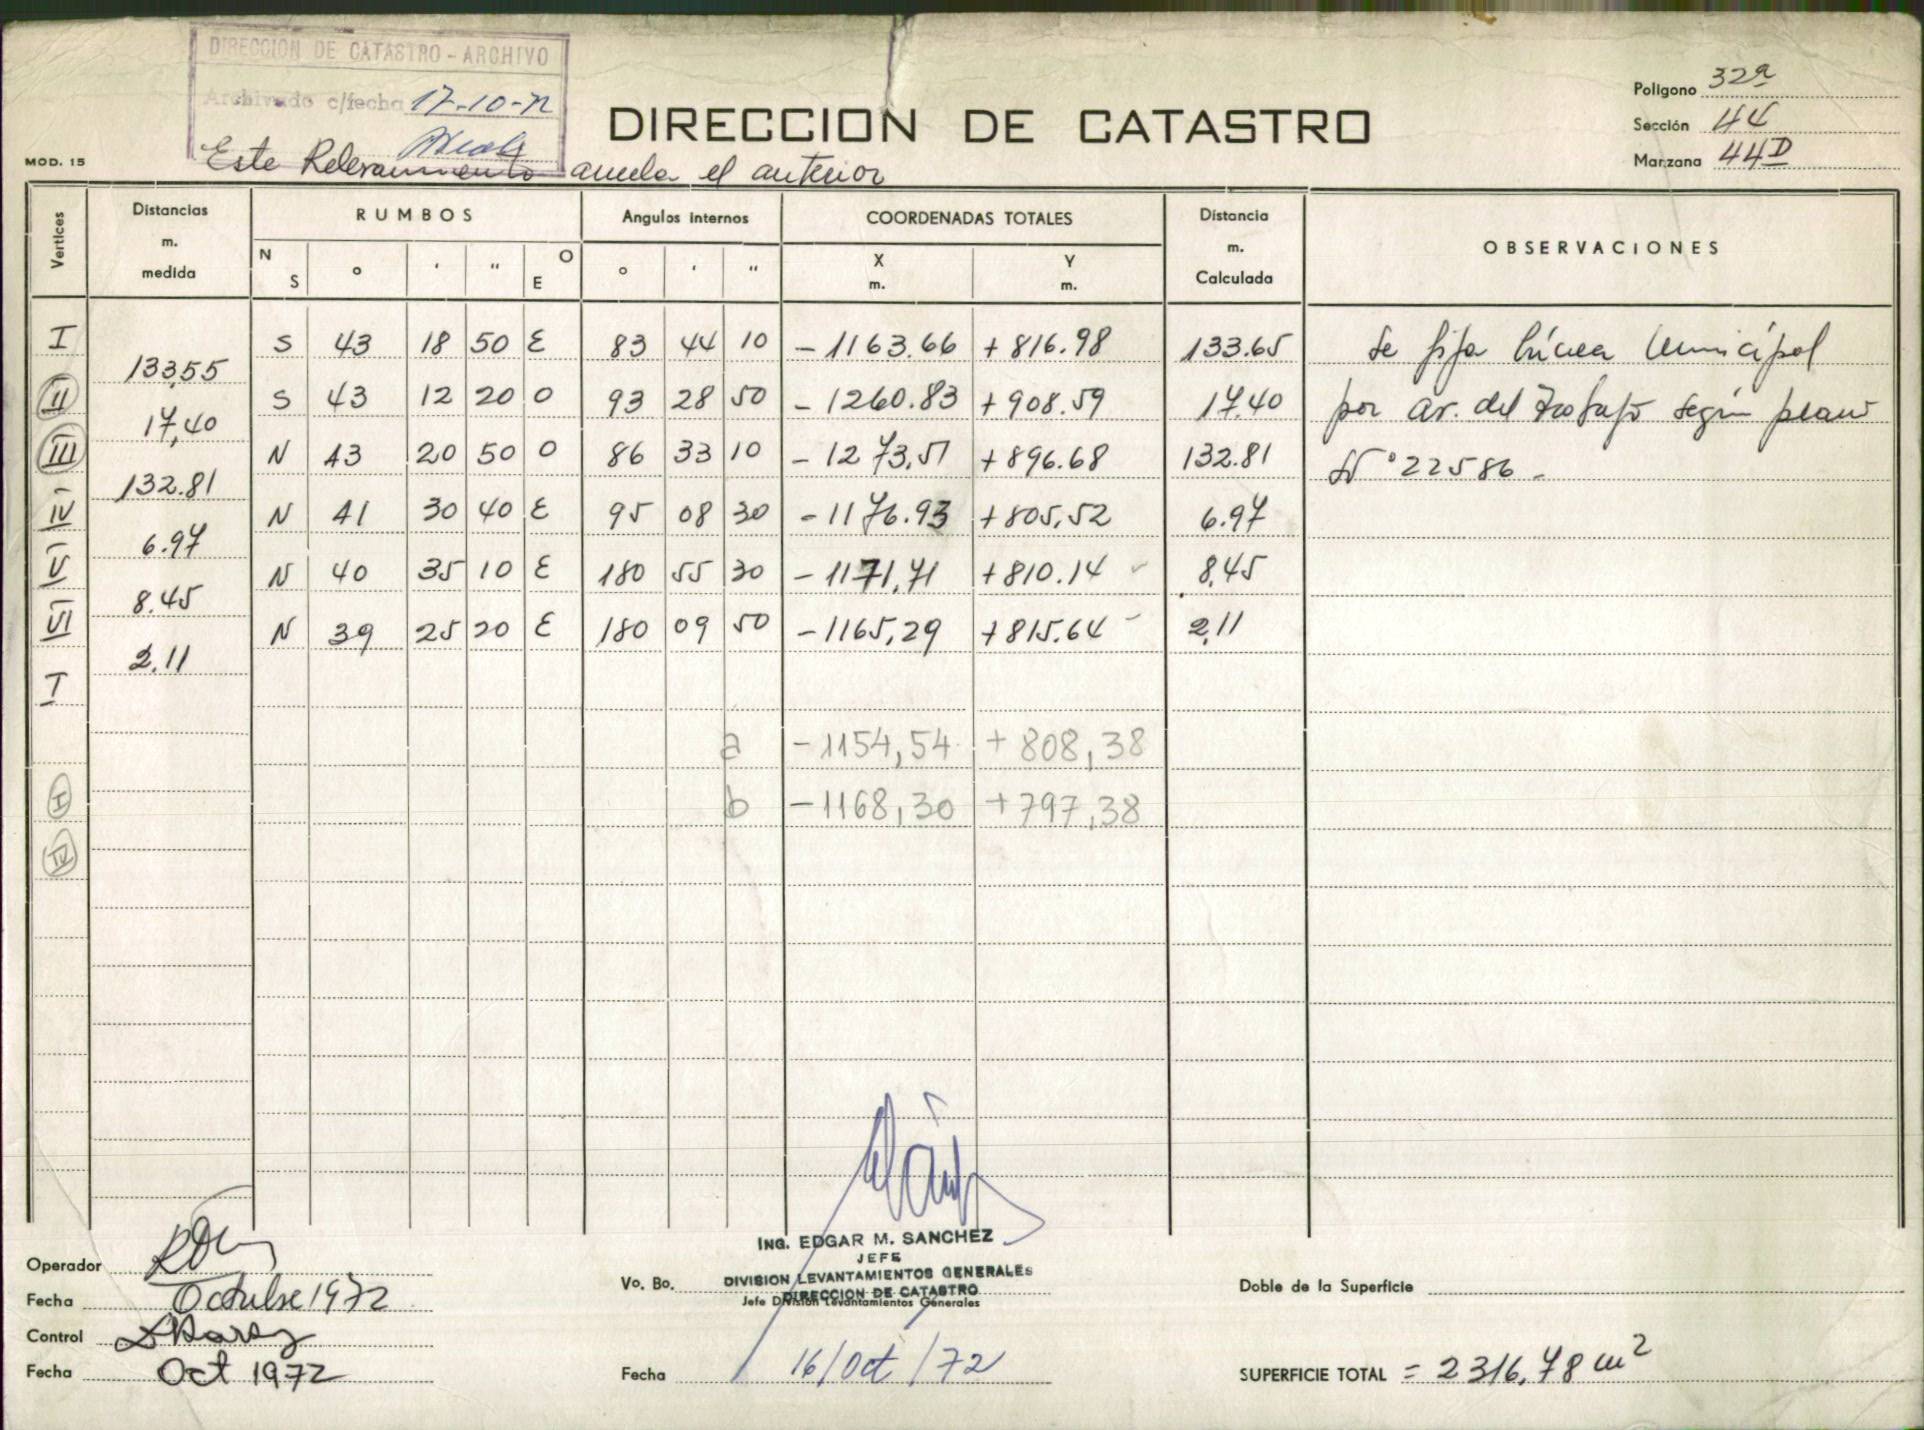 DIRECCION DE CATASTRO - ARCHIVO
Archivado c/fecha 17-10-72
DIRECCION DE CATASTRO
Poligono 32ª
Sección 44
Manzana 44D
MOD. 15
Este Relevamiento anula el anterior
Vertices Distancias m. medida RUMBOS Angulos internos COORDENADAS TOTALES Distancia m. Calculada OBSERVACIONES
N S ° ' " O E ° ' " X m. Y m.
I S 43 18 50 E 83 44 10 -1163.66 +816.98 133.65 Se fija Línea Municipal
133,55
II S 43 12 20 O 93 28 50 -1260.83 +908.59 17.40 por av. del Trabajo según plano
17,40
III N 43 20 50 O 86 33 10 -1273,51 +896.68 132.81 Nº 22586 -
132.81
IV N 41 30 40 E 95 08 30 -1176.93 +805,52 6.97
6.97
V N 40 35 10 E 180 55 30 -1171,71 +810.14 8.45
8.45
VI N 39 25 20 E 180 09 50 -1165,29 +815.64 2,11
2.11
I
a -1154,54 +808,38
I b -1168,30 +797,38
IV
Operador
Fecha Octubre 1972
Control
Fecha Oct 1972
Vo. Bo.
ING. EDGAR M. SANCHEZ
JEFE
DIVISION LEVANTAMIENTOS GENERALES
DIRECCION DE CATASTRO
Jefe División Levantamientos Generales
Fecha 16/Oct/72
Doble de la Superficie
SUPERFICIE TOTAL = 2316,78 m²